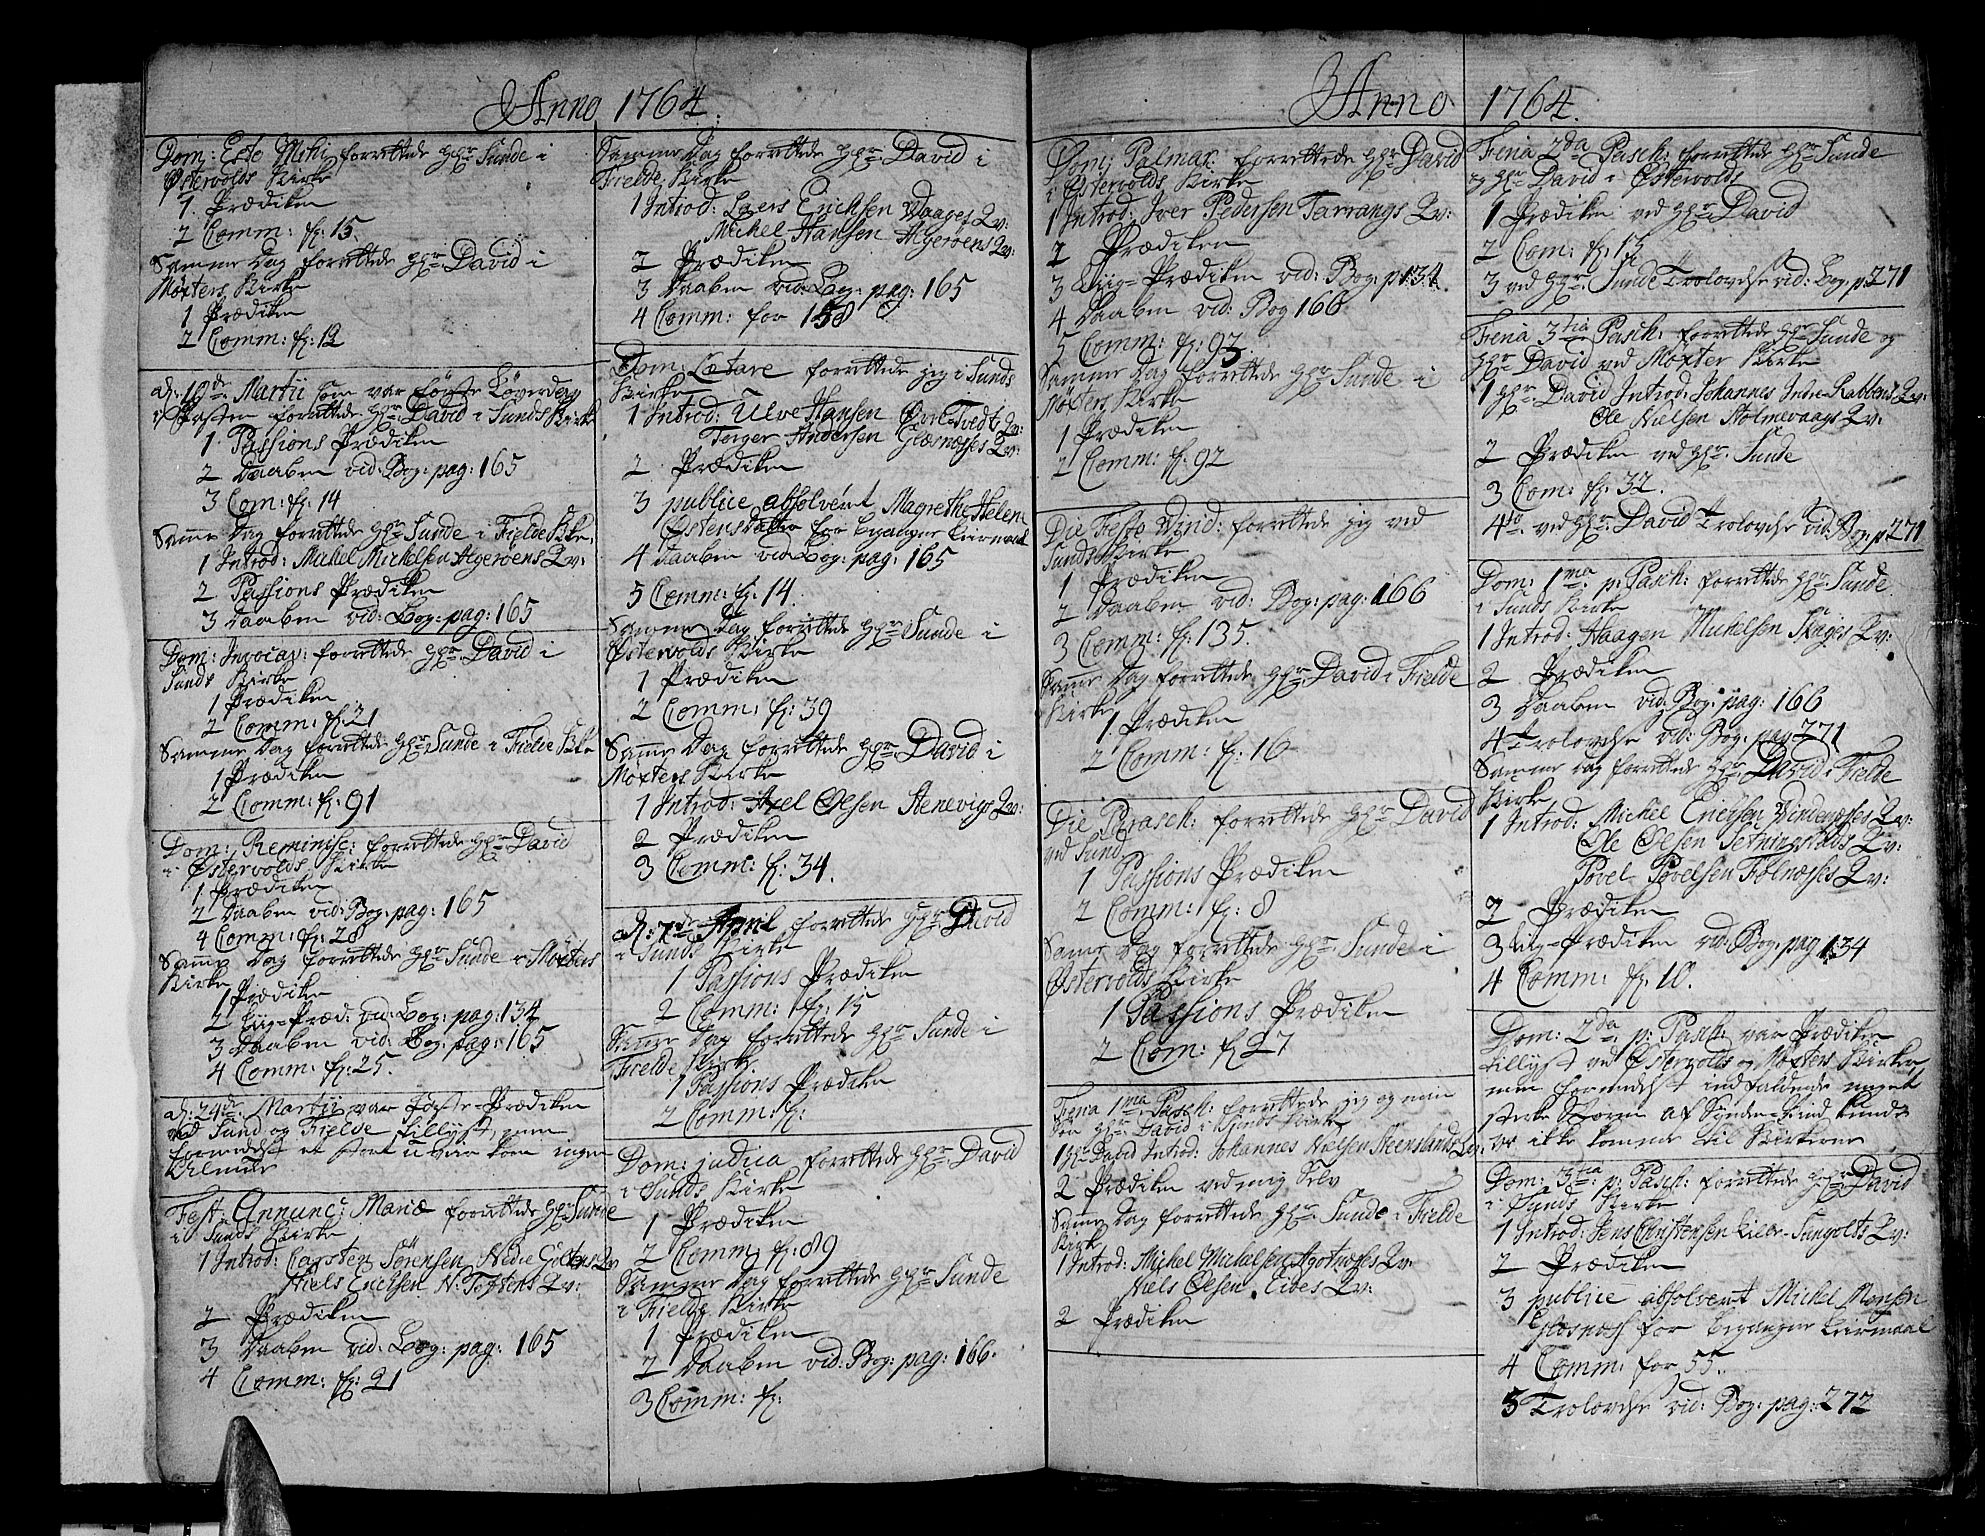 Anno 1764.
Dom: Esto Mihi forrettede Hr Sunde i
Østervolds Kirke
1 Prædiken
2 Comm: f: 15
Samme Dag forrettede Hr David i
Møxters Kirke
1 Prædiken
2 Comm: f: 12
Martii som var første Løverdag
i Fasten forrettede Hr David i Sunds Kirke
1 Passions Prædiken
2 Daaben vid: Bog: pag: 165
3 Com: f: 14
Samme Dag forrettede Hr Sunde i Fielde Kke
1 Introd: Mickel Mickelsen Algerøens Qv:
2 Passions Prædiken
3 Daaben vid: Bog: pag: 165
Dom: Invocav: forrettede Hr David i
Sunds Kirke
1 Prædiken
2 Comm: f: 21
Samme Dag forrettede Hr Sunde i Fielde Kke
1 Prædiken
2 Comm: f: 91
Dom: Reminisc: forrettede Hr David
i Østervolds Kirke
1 Prædiken
2 Daaben vid: Bog: pag: 165
4 Comm: f: 28
Samme Dag forrettede Hr Sunde i Møxters
Kirke
1 Prædiken
2 Liig-Præd: vid: Bog: pag: 134
3 Daaben vid: Bog: pag: 165
4 Comm: f: 25.
d: 24de Martii var Faste-Prædiken
ved Sund og Fielde tillyst, men
formedelst et stort uveir kom ingen
Almue
Fest. Annunc: Mariæ forrettede Hr Sunde
i Sunds Kirke
1 Introd: Carsten Sørensen Nedre Giøltens Qv
Niels Ericksen N: Toftens Qv:
2 Prædiken
3 Daaben vid: Bog: pag: 165
4 Comm: f: 21
Samme Dag forrettede Hr David i
Fielde Kirke
1 Introd: Laers Ericksen Waages Qv:
Mickel Hansen Algerøens Qv:
2 Prædiken
3 Daaben vid: Bog: pag: 165
4 Comm: for 158
Dom: Lætare forrettede jeg i Sunds
Kirke
1 Introd: Ulve Hansen Qvv:
Torger Andersen Glærnæsses Qv:
2 Prædiken
3 publice absolveret Magrethe Helene
for begangen Leiermaal
4 Daaben vid: Bog: pag: 165
5 Comm: f: 14.
Samme Dag forrettede Hr Sunde i
Østervolds Kirke
1 Prædiken
2 Comm: f: 39
Samme Dag forrettede Hr David i
Møxters Kirke
1 Introd: Axel Olsen Stenevigs Qv:
2 Prædiken
3 Comm: f: 34.
d: 7de April forrettede Hr David
i Sunds Kirke
1 Passions Prædiken
2 Comm: f: 15
Samme Dag forrettede Hr Sunde i
Fielde Kirke
1 Passions Prædiken
2 Comm: f:
Dom: judica forrettede Hr David
i Sunds Kirke
1 Prædiken
2 Comm: f: 89
Samme Dag forrettede Hr Sunde
i Fielde Kirke
1 Prædiken
2 Daaben vid: Bog: pag: 166.
3 Comm: f:
Anno 1764.
Dom: Palmar: forrettede Hr David
i Østervolds Kirke
1 Introd: Iver Pedersen Tarrangs Qv:
2 Prædiken
3 Liig-Prædiken vid: Bog: p: 134.
4 Daaben vid: Bog 166
5 Comm: f: 92.
Samme Dag forrettede Hr Sunde i
Møxters Kirke
1 Prædiken
2 Comm: f: 92
Die forrettede jeg ved
Sunds Kirke
1 Prædiken
2 Daaben vid: Bog: pag: 166
3 Comm: f: 135.
Samme Dag forrettede Hr David i Fielde
Kirke
1 Prædiken
2 Comm: f: 16
Die Parasch: forrettede Hr David
ved Sund
1 Passions Prædiken
2 Comm: f: 8
Samme Dag forrettede Hr Sunde i
Østervolds Kirke
1 Passions Prædiken
2 Com: f: 27
Feria 1ma Pasch: forrettede jeg og min
Søn Hr David i Sunds Kirke
1 Hr David Introd: Johannes Nielsen Steenslands Qv:
2 Prædiken ved mig Selv
Samme Dag forrettede Hr Sunde i Fielde
Kirk
1 Introd: Mickel Mickelsen Agotnæsses Qv
Niels Olsen Eides Qv:
2 Prædiken
Feria 2da Pasch: forrettede Hr Sunde
og Hr David i Østervolds
1 Prædiken ved Hr David
2 Com: f: 15
3 ved Hr Sunde Trolovelse vid: Bog. p: 271
Feria 3tia Pasch: forrettede Hr Sunde og
Hr David ved Møxter Kirke
1 Hr David Introd: Johannes Qv:
Ole Nielsen Stolmevaags Qv:
2 Prædiken ved Hr. Sunde
3 Com: f: 32.
4to ved Hr: David Trolovelse vid: Bog: p 271
Dom: 1ma p: Pasch: forrettede Hr Sunde
i Sunds Kirke
1 Introd: Haagen Mickelsen Skages Qv:
2 Prædiken
3 Daaben vid: Bog: pag: 166
4 Trolovelse vid: Bog: pag 271
Samme Dag forrettede Hr David i Fielde
Kirke
1 Introd: Mickel Ericksen Vindenæsses Qv:
Ole Olsen Qv:
Povel Povelsen Folnæsses Qv:
2 Prædiken
3 Liig-Prædiken vid: Bog: pag 134
4 Comm: f: 10.
Dom: 2da p: Pasch: var Prædiken
tillyst ved Østervolds og Møxters Kirker
men formedelst indfaldende meget
sterke Storm af Synden-Vind kunde
vi ikke komme til Kirkerne
Dom: 3tia p: Pasch: forrettede Hr David
i Sunds Kirke
1 Introd: Jens Christensen Qv:
2 Prædiken
3 publice absolveret Mickel Monsen
for begangen Leiermaal
4 Comm: for 55.
5 Trolovelse vid: Bog: pag: 272